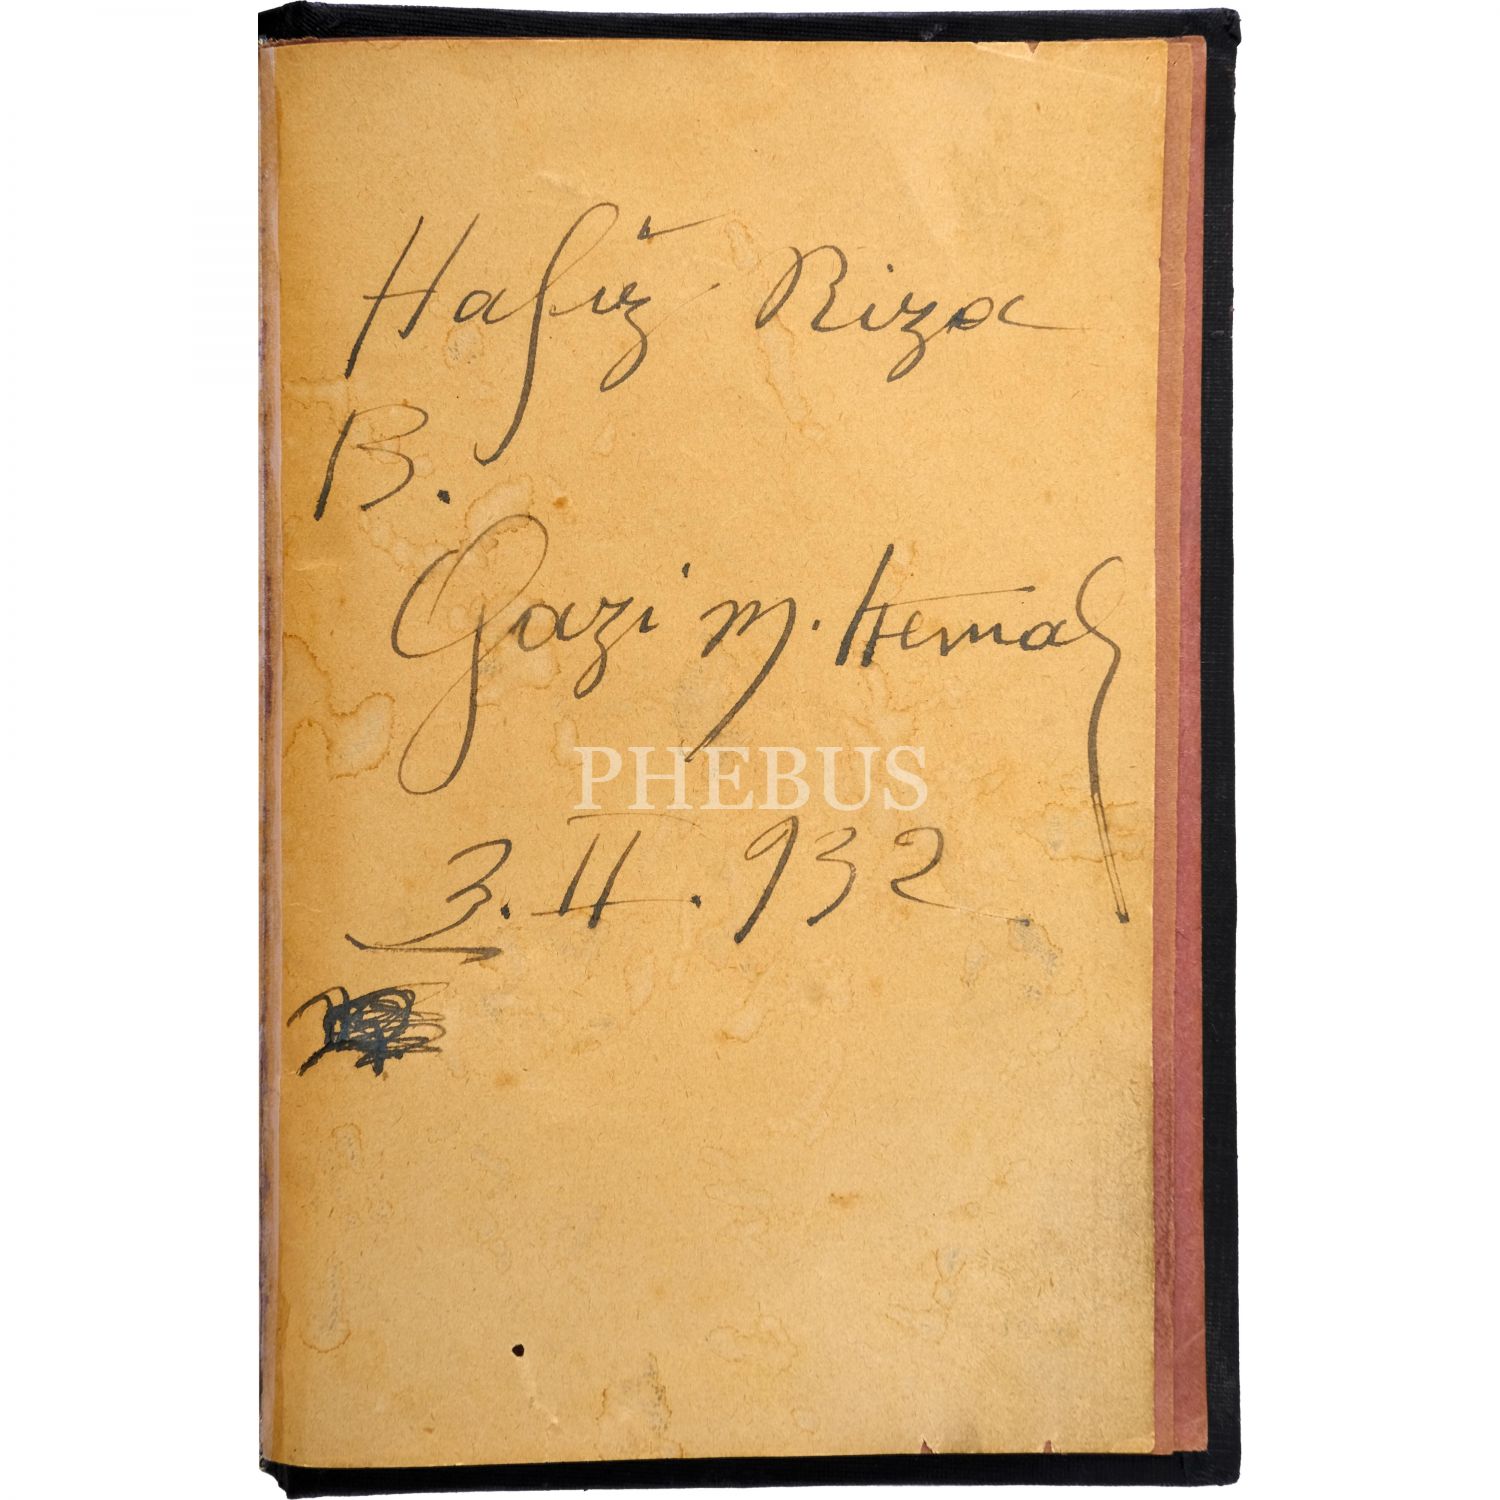 Hafız Riza
B.
Gazi M. Kemal
PHEBUS
3. II. 932